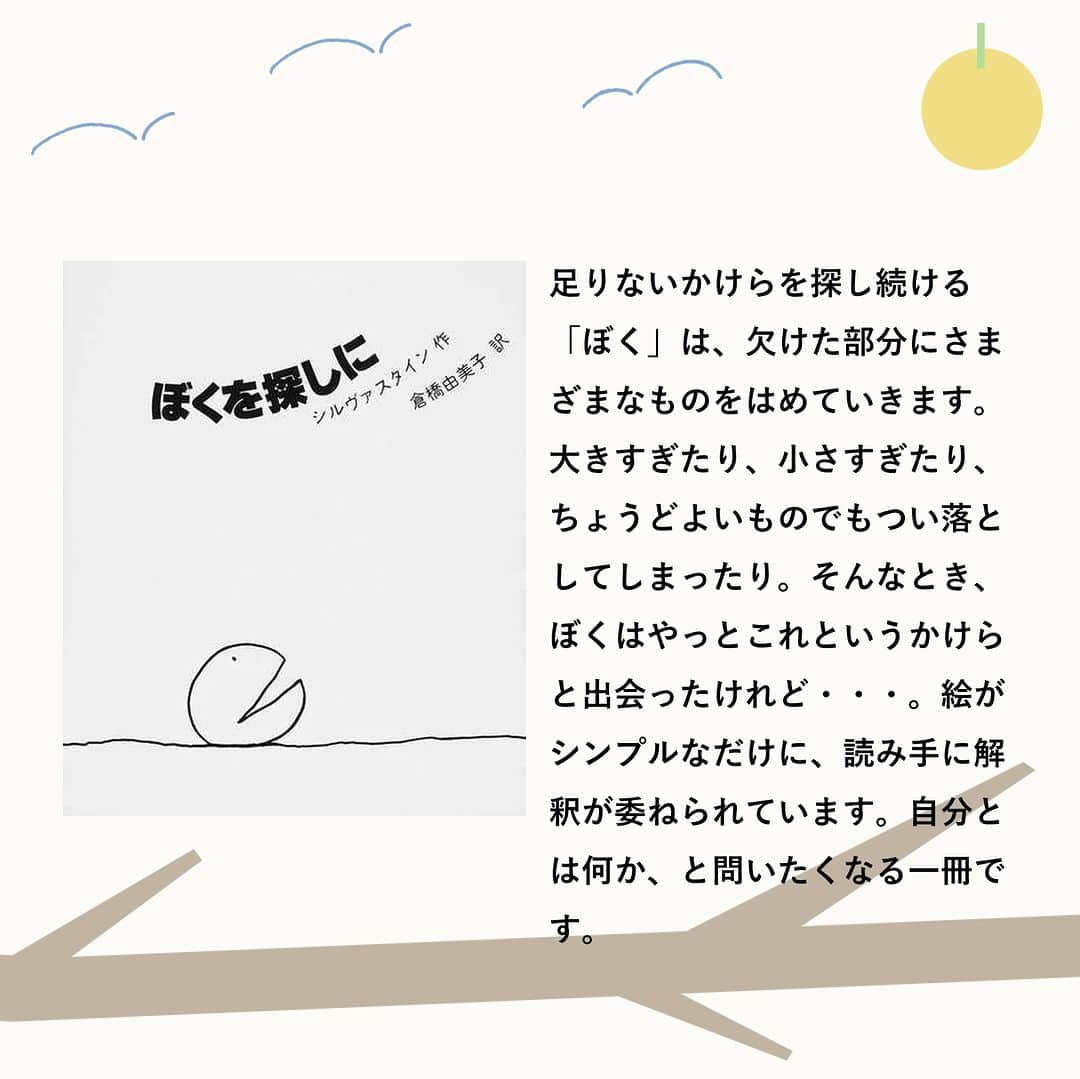 ぼくを探しに
シルヴァスタイン 作
倉橋由美子 訳
足りないかけらを探し続ける
「ぼく」は、欠けた部分にさま
ざまなものをはめていきます。
大きすぎたり、小さすぎたり、
ちょうどよいものでもつい落と
してしまったり。そんなとき、
ぼくはやっとこれというかけら
と出会ったけれど・・・。絵が
シンプルなだけに、読み手に解
釈が委ねられています。自分と
は何か、と問いたくなる一冊で
す。